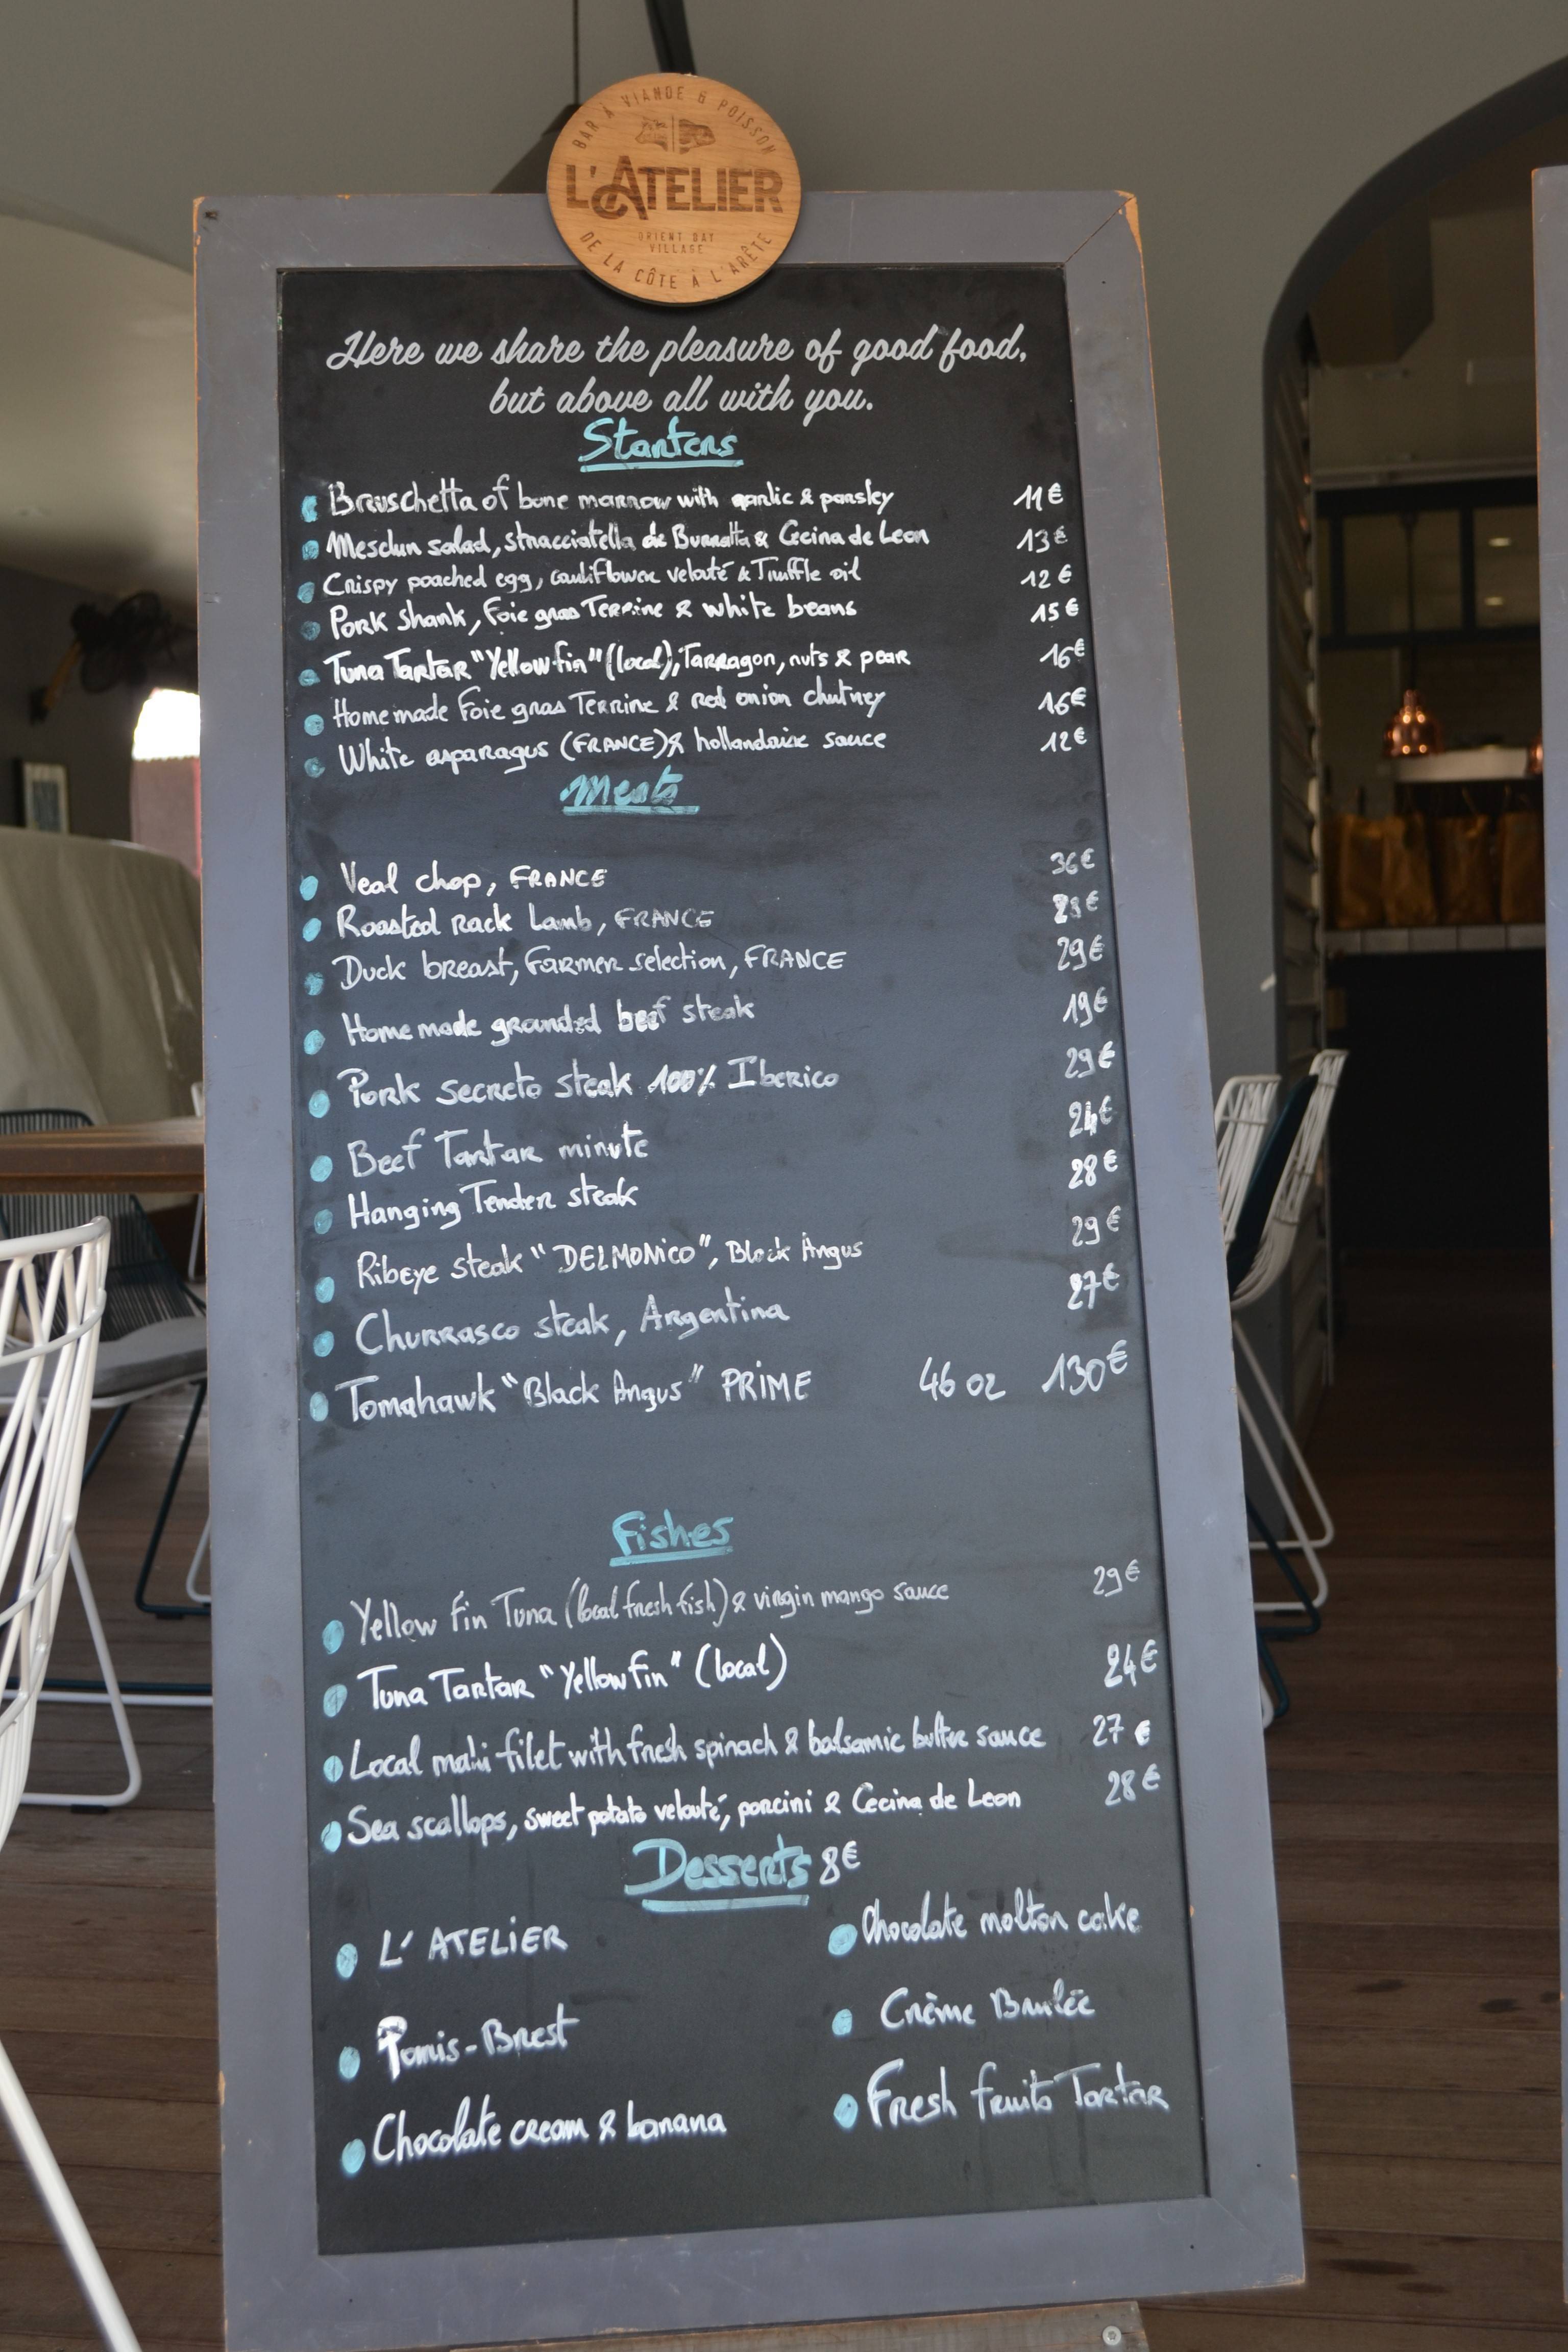 BAR À VIANDE & POISSON
L'ATELIER
ORIENT BAY
VILLAGE
DE LA CÔTE À L'ARÊTE
Here we share the pleasure of good food,
but above all with you.
Starters
Bruschetta of bone marrow with garlic & parsley 11€
Mesclun salad, stracciatella de Burratta & Cecina de Leon 13€
Crispy poached egg, cauliflower velouté & Truffle oil 12€
Pork shank, Foie gras Terrine & white beans 15€
Tuna Tartar "Yellow fin" (local), Tarragon, nuts & pear 16€
Home made Foie gras Terrine & red onion chutney 16€
White asparagus (FRANCE) & hollandaise sauce 12€
Meats
Veal chop, FRANCE 36€
Roasted rack Lamb, FRANCE 28€
Duck breast, Farmer selection, FRANCE 29€
Home made grounded beef steak 19€
Pork secreto steak 100% Iberico 29€
Beef Tartar minute 24€
Hanging Tender steak 28€
Ribeye steak "DELMONICO", Black Angus 29€
Churrasco steak, Argentina 27€
Tomahawk "Black Angus" PRIME 46 oz 130€
Fishes
Yellow Fin Tuna (local fresh fish) & virgin mango sauce 29€
Tuna Tartar "Yellow fin" (local) 24€
Local mahi filet with fresh spinach & balsamic butter sauce 27€
Sea scallops, sweet potato velouté, porcini & Cecina de Leon 28€
Desserts 8€
L'ATELIER
Chocolate molton cake
Paris-Brest
Crème Brulée
Chocolate cream & banana
Fresh fruits Tartar